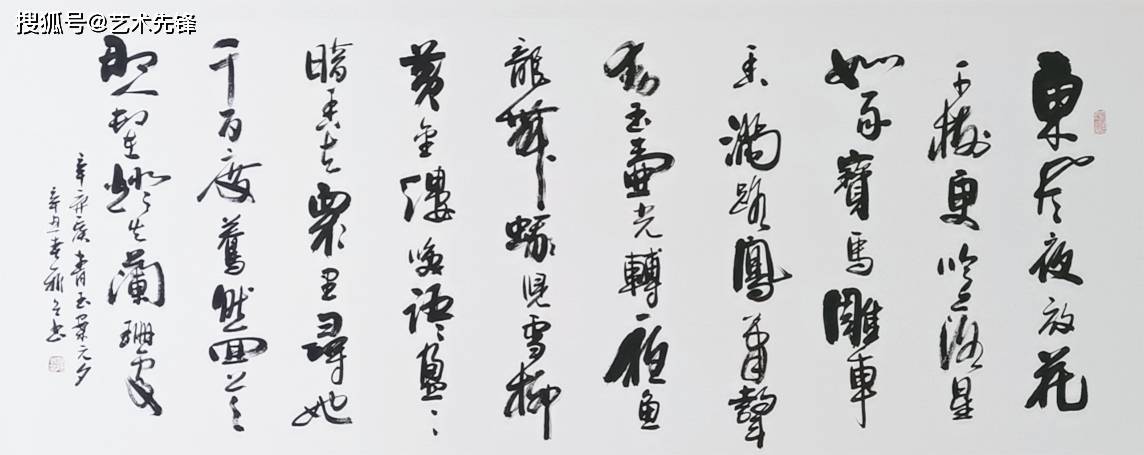 搜狐号@艺术先锋
東风夜放花
千樹更吹落星
如雨寶馬雕車
香滿路鳳簫聲
動玉壺光轉一夜魚
龍舞蛾兒雪柳
黄金縷咲語盈盈
暗香去眾里尋她
千百度驀然回首
那人却在燈火蘭珊處
辛弃疾青玉案元夕
辛丑春书